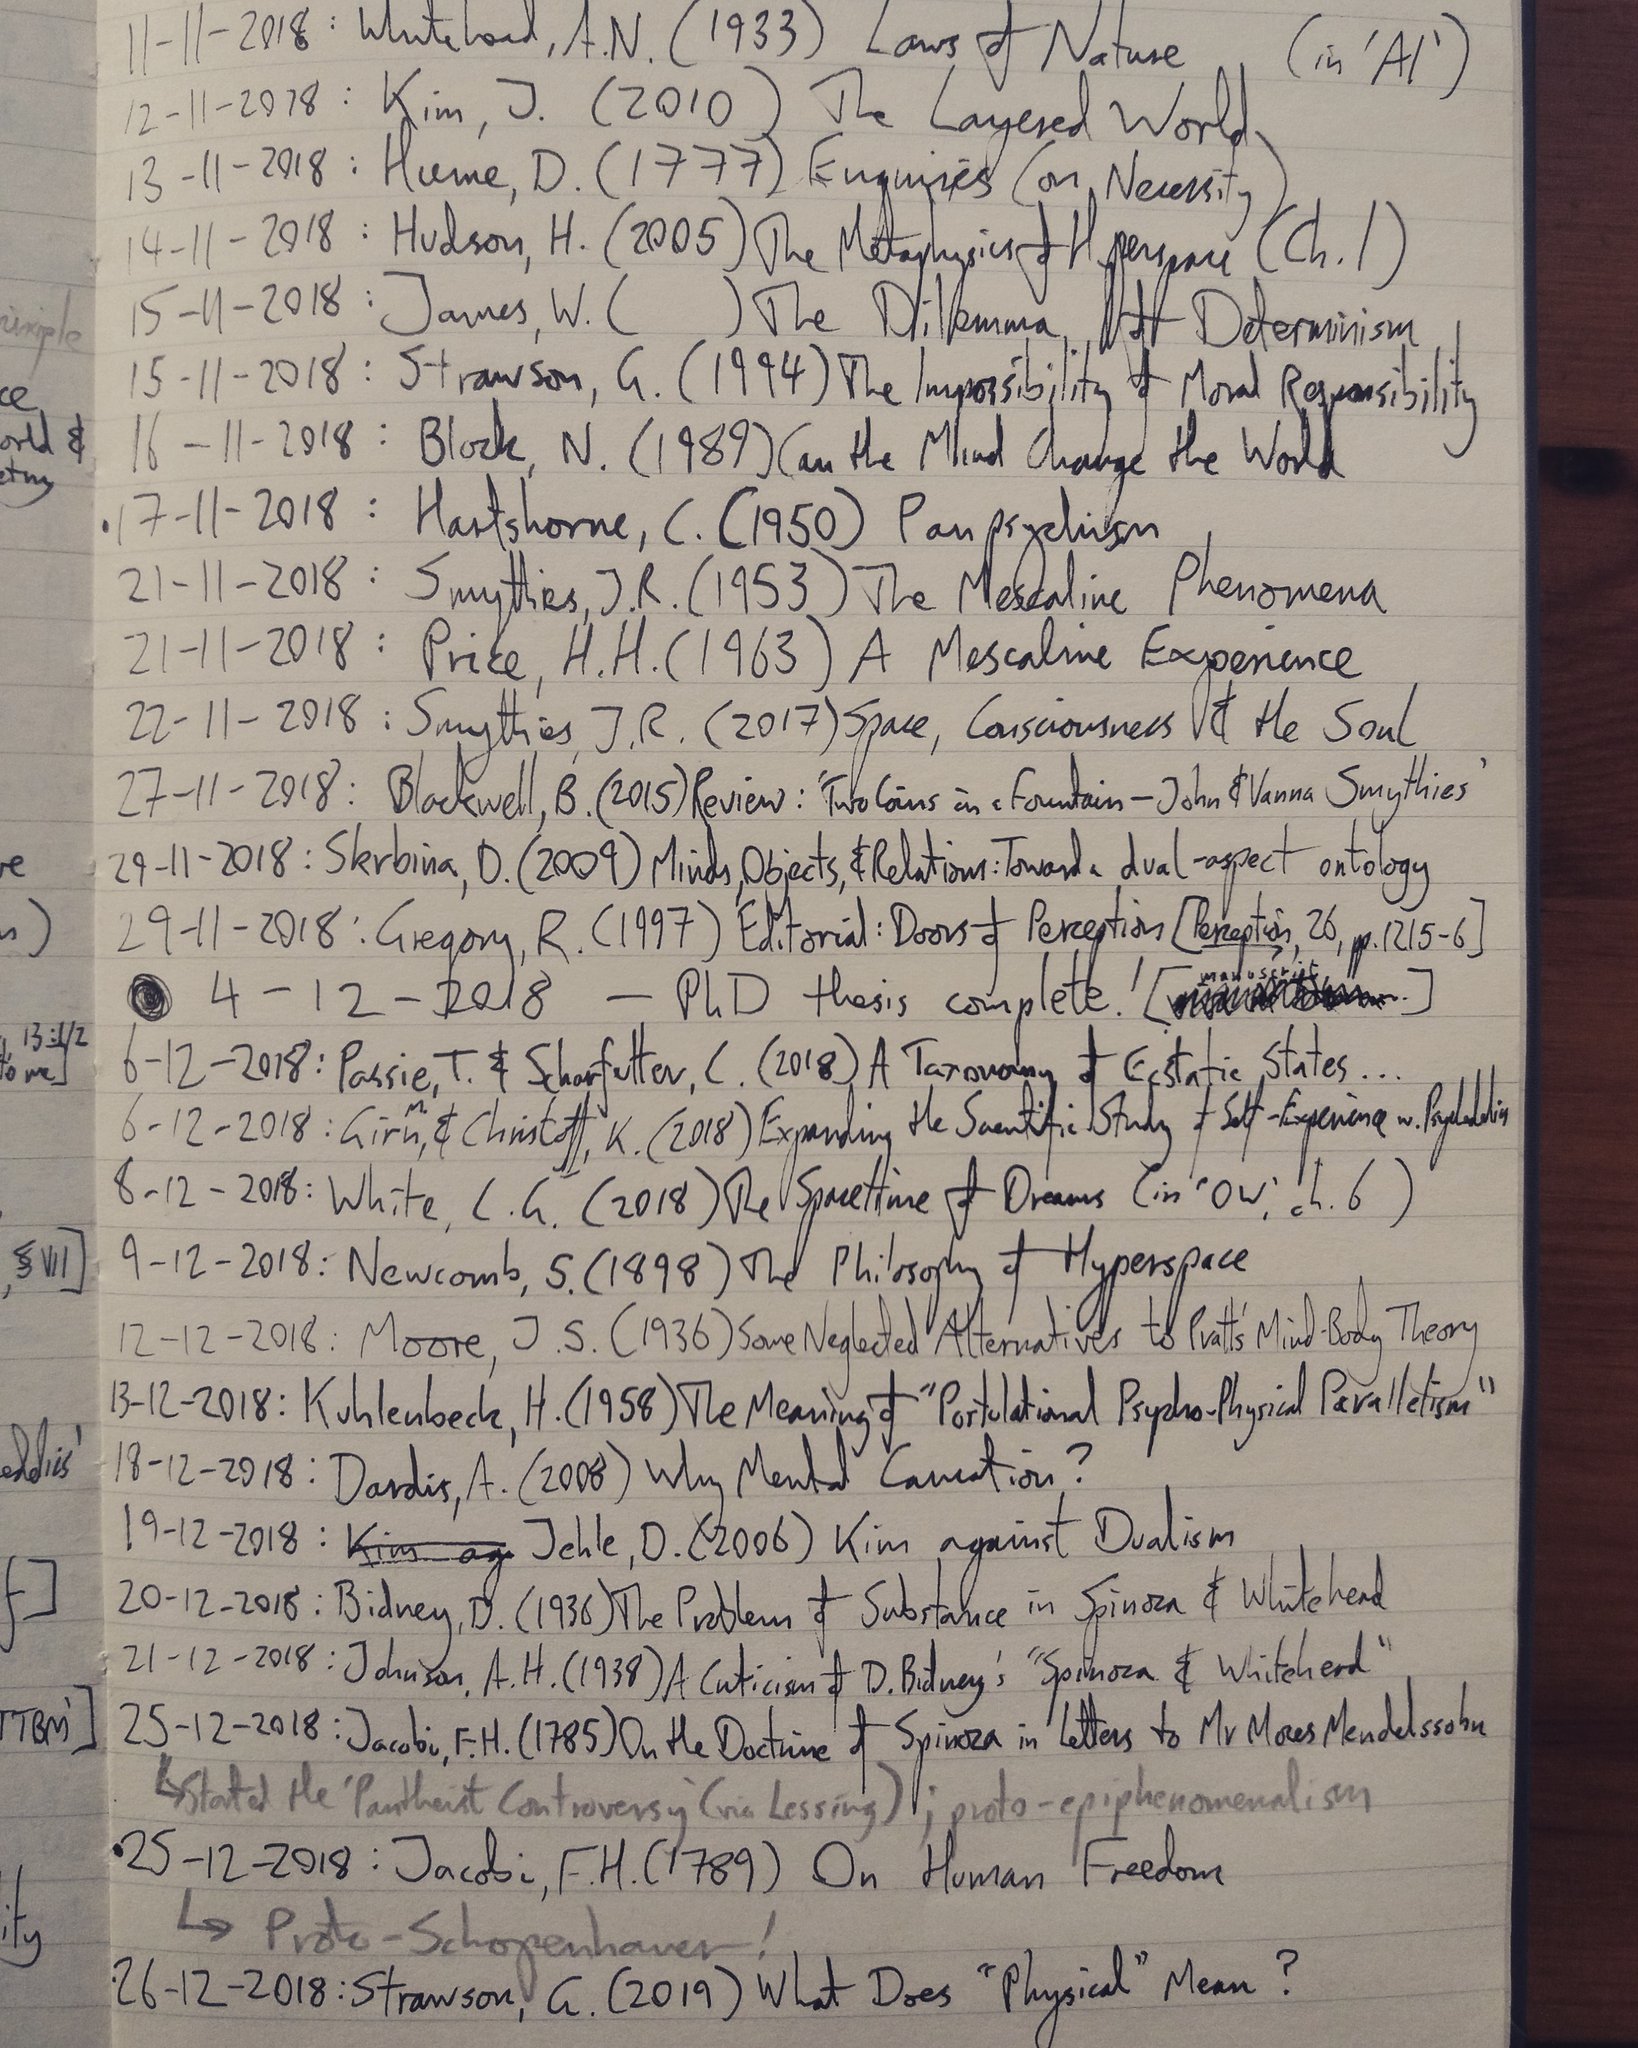 11-11-2018: Whitehead, A.N. (1933) Laws of Nature (in 'AI')
12-11-2018: Kim, J. (2010) The Layered World
13-11-2018: Hume, D. (1777) Enquiries (on Necessity)
14-11-2018: Hudson, H. (2005) The Metaphysics of Hyperspace (Ch. 1)
15-11-2018: James, W. ( ) The Dilemma of Determinism
15-11-2018: Strawson, G. (1994) The Impossibility of Moral Responsibility
16-11-2018: Block, N. (1989) Can the Mind Change the World
17-11-2018: Hartshorne, C. (1950) Panpsychism
21-11-2018: Smythies, J.R. (1953) The Mescaline Phenomena
21-11-2018: Price, H.H. (1963) A Mescaline Experience
22-11-2018: Smythies, J.R. (2017) Space, Consciousness & the Soul
27-11-2018: Blackwell, B. (2015) Review: 'Two Coins in a Fountain – John & Vanna Smythies'
29-11-2018: Skrbina, D. (2009) Minds, Objects, & Relations: Toward a dual-aspect ontology
29-11-2018: Gregory, R. (1997) Editorial: Doors of Perception [Perception, 26, pp. 1215-6]
4-12-2018 — PhD thesis complete! [manuscript]
6-12-2018: Passie, T. & Scharfetter, C. (2018) A Taxonomy of Ecstatic States...
6-12-2018: Girn, M. & Christoff, K. (2018) Expanding the Scientific Study of Self-Experience w. Psychedelics
8-12-2018: White, C.G. (2018) The Spacetime of Dreams (in 'OW', ch. 6)
9-12-2018: Newcomb, S. (1898) The Philosophy of Hyperspace
12-12-2018: Moore, J.S. (1936) Some Neglected Alternatives to Pratt's Mind-Body Theory
13-12-2018: Kuhlenbeck, H. (1958) The Meaning of "Postulational Psycho-Physical Parallelism"
18-12-2018: Dardis, A. (2008) Why Mental Causation?
19-12-2018: Kim ag Jehle, D. (2006) Kim against Dualism
20-12-2018: Bidney, D. (1936) The Problem of Substance in Spinoza & Whitehead
21-12-2018: Johnson, A.H. (1938) A Criticism of D. Bidney's "Spinoza & Whitehead"
25-12-2018: Jacobi, F.H. (1785) On the Doctrine of Spinoza in Letters to Mr Moses Mendelssohn
↳ Started the 'Pantheist Controversy' (via Lessing); proto-epiphenomenalism
25-12-2018: Jacobi, F.H. (1789) On Human Freedom
↳ Proto-Schopenhauer!
26-12-2018: Strawson, G. (2019) What Does "Physical" Mean?